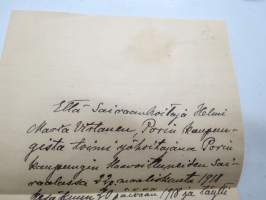 Että Sairaanhoitaja Helmi
Maria Virtanen, Porin kaupun-
gista toimi yöhoitajana Porin
kaupungin Haavoittuneiden Sai-
raalassa 22 p. maaliskuuta 1918 -
kesäkuun 20 päivään 1918 ja täytti